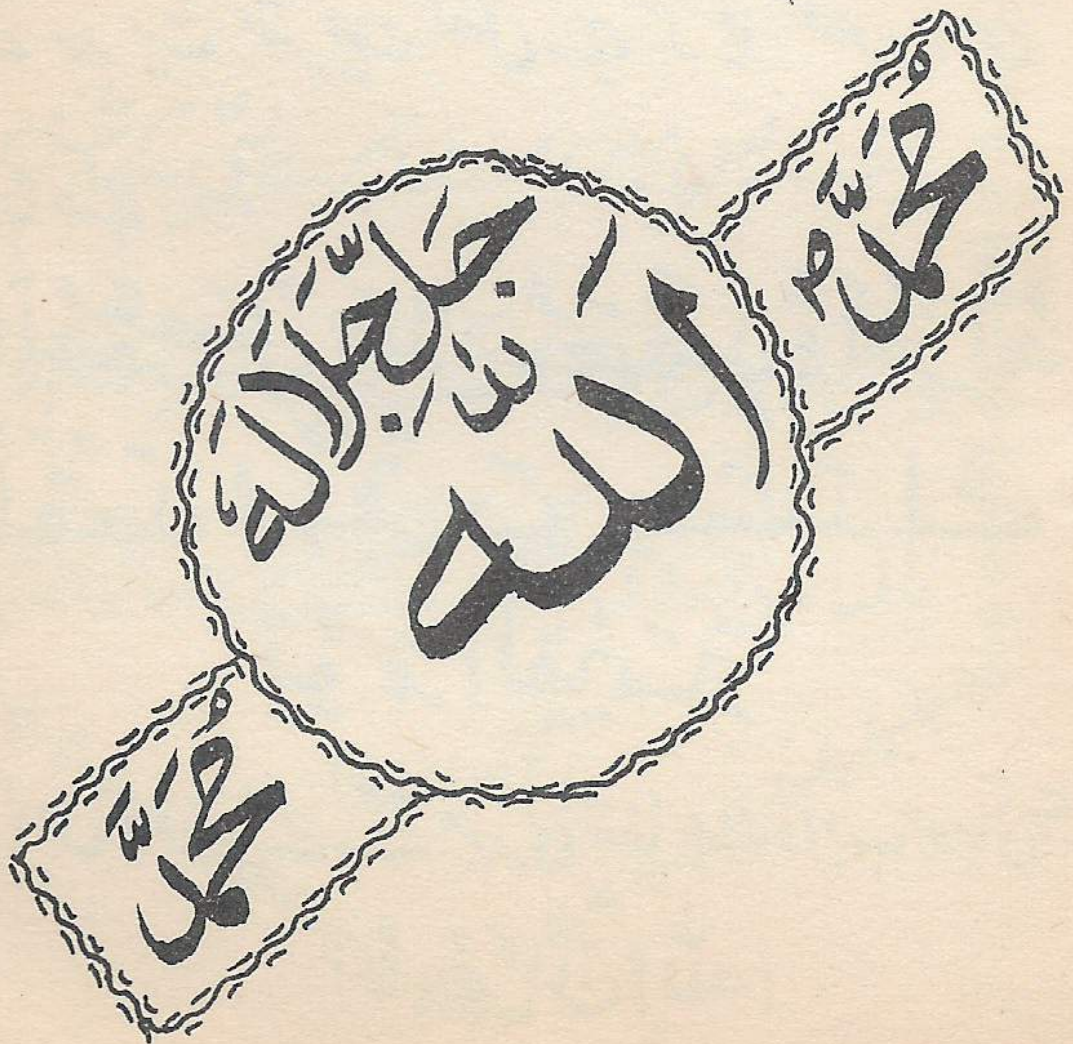 مُحَمَّد ؐ
اَللّٰه
جَلَّ جَلَالَهُ
مُحَمَّد